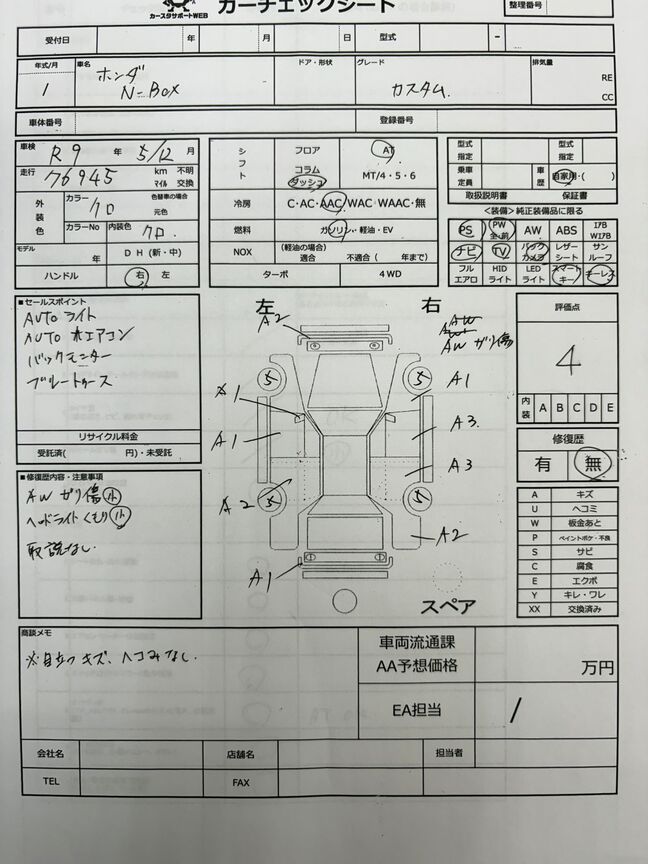 カースタサポートWEB
カーチェックシート
整理番号
受付日 年 月 日 型式 -
年式/月 車名 ドア・形状 グレード 排気量
1 ホンダ N-Box カスタム. RE CC
車体番号 登録番号
車検 R9 年 5/12 月
走行 76945 km マイル 不明 交換
外装色 カラー クロ 色替車の場合 元色
カラーNo 内装色 クロ.
モデル 年 DH (新・中)
ハンドル 右 左
シフト フロア AT
コラム ダッシュ MT/4・5・6
冷房 C・AC・AAC・WAC・WAAC・無
燃料 ガソリン・軽油・EV
NOX (軽油の場合) 適合 不適合 ( 年まで)
ターボ 4WD
型式指定 型式指定
乗車定員 車歴 自家用・( )
取扱説明書 保証書
<装備> 純正装備品に限る
PS PW 全・前 AW ABS IアB WIアB
ナビ TV バックカメラ レザーシート サンルーフ
フルエアロ HIDライト LEDライト スマートキー キーレス
■セールスポイント
AUTOライト
AUTO エアコン
バックモニター
ブルートゥース
リサイクル料金
受託済( 円)・未受託
■修復歴内容・注意事項
AW ガリ傷 小
ヘッドライトくもり 小
取説なし.
左 右
A2
AW ガリ傷
5 5
A1
A1
A3.
A1
A3
A2
5 5
A2
A1
スペア
評価点
4
内装 A B C D E
修復歴
有 無
A キズ
U ヘコミ
W 板金あと
P ペイントボケ・不良
S サビ
C 腐食
E エクボ
Y キレ・ワレ
XX 交換済み
商談メモ
※目立つキズ、ヘコみなし.
車両流通課
AA予想価格 万円
EA担当 /
会社名 店舗名 担当者
TEL FAX